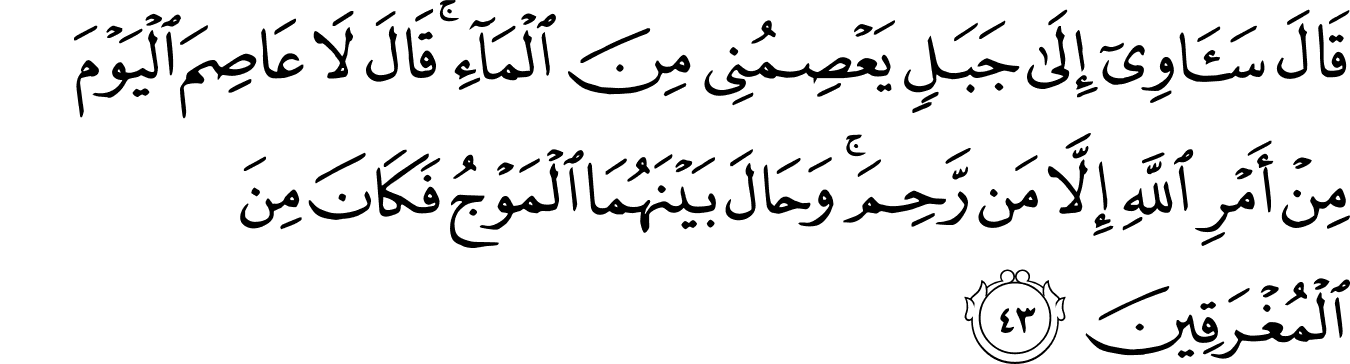 قَالَ سَـَٔاوِىٓ إِلَىٰ جَبَلٍ يَعْصِمُنِى مِنَ ٱلْمَآءِ ۚ قَالَ لَا عَاصِمَ ٱلْيَوْمَ
مِنْ أَمْرِ ٱللَّهِ إِلَّا مَن رَّحِمَ ۚ وَحَالَ بَيْنَهُمَا ٱلْمَوْجُ فَكَانَ مِنَ
ٱلْمُغْرَقِينَ ٤٣